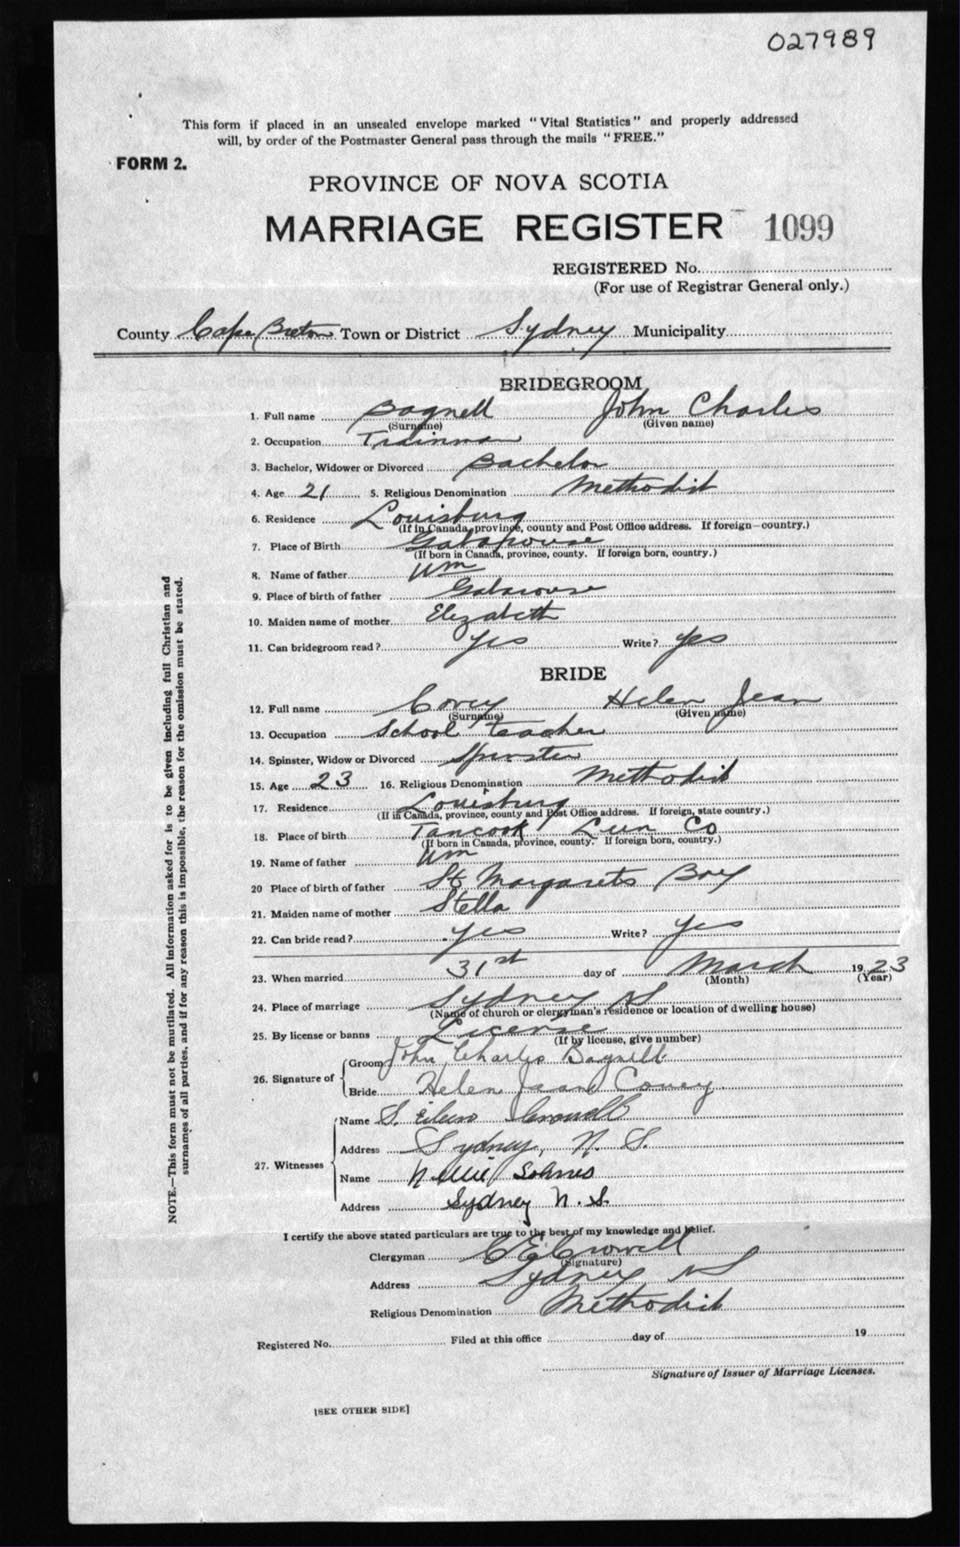 027989
This form if placed in an unsealed envelope marked "Vital Statistics" and properly addressed
will, by order of the Postmaster General pass through the mails "FREE."
FORM 2.
PROVINCE OF NOVA SCOTIA
MARRIAGE REGISTER 1099
REGISTERED No.
(For use of Registrar General only.)
County Cape Breton Town or District Sydney Municipality
BRIDEGROOM
1. Full name Bagnell John Charles
(Surname) (Given name)
2. Occupation Trainman
3. Bachelor, Widower or Divorced Bachelor
4. Age 21 5. Religious Denomination Methodist
6. Residence Louisburg
(If in Canada, province, county and Post Office address. If foreign—country.)
7. Place of Birth Gabarouse
(If born in Canada, province, county. If foreign born, country.)
8. Name of father Wm
9. Place of birth of father Gabarouse
10. Maiden name of mother Elizabeth
11. Can bridegroom read? Yes Write? Yes
BRIDE
12. Full name Covey Helen Jean
(Surname) (Given name)
13. Occupation School teacher
14. Spinster, Widow or Divorced Spinster
15. Age 23 16. Religious Denomination Methodist
17. Residence Louisburg
(If in Canada, province, county and Post Office address. If foreign, state country.)
18. Place of birth Tancook Lun Co
(If born in Canada, province, county. If foreign born, country.)
19. Name of father Wm
20 Place of birth of father St Margarets Bay
21. Maiden name of mother Stella
22. Can bride read? yes Write? yes
23. When married 31st day of March 1923
(Month) (Year)
24. Place of marriage Sydney NS
(Name of church or clergyman's residence or location of dwelling house)
25. By license or banns License
(If by license, give number)
26. Signature of
Groom John Charles Bagnell
Bride Helen Jean Covey
27. Witnesses
Name S. Crowell
Address Sydney, N. S.
Name Nellie
Address Sydney N. S.
I certify the above stated particulars are true to the best of my knowledge and belief.
Clergyman C E Crowell
(Signature)
Address Sydney NS
Religious Denomination Methodist
Registered No. Filed at this office day of 19
Signature of Issuer of Marriage Licenses.
[SEE OTHER SIDE]
NOTE.—This form must not be mutilated. All information asked for is to be given including full Christian and
surnames of all parties, and if for any reason this is impossible, the reason for the omission must be stated.